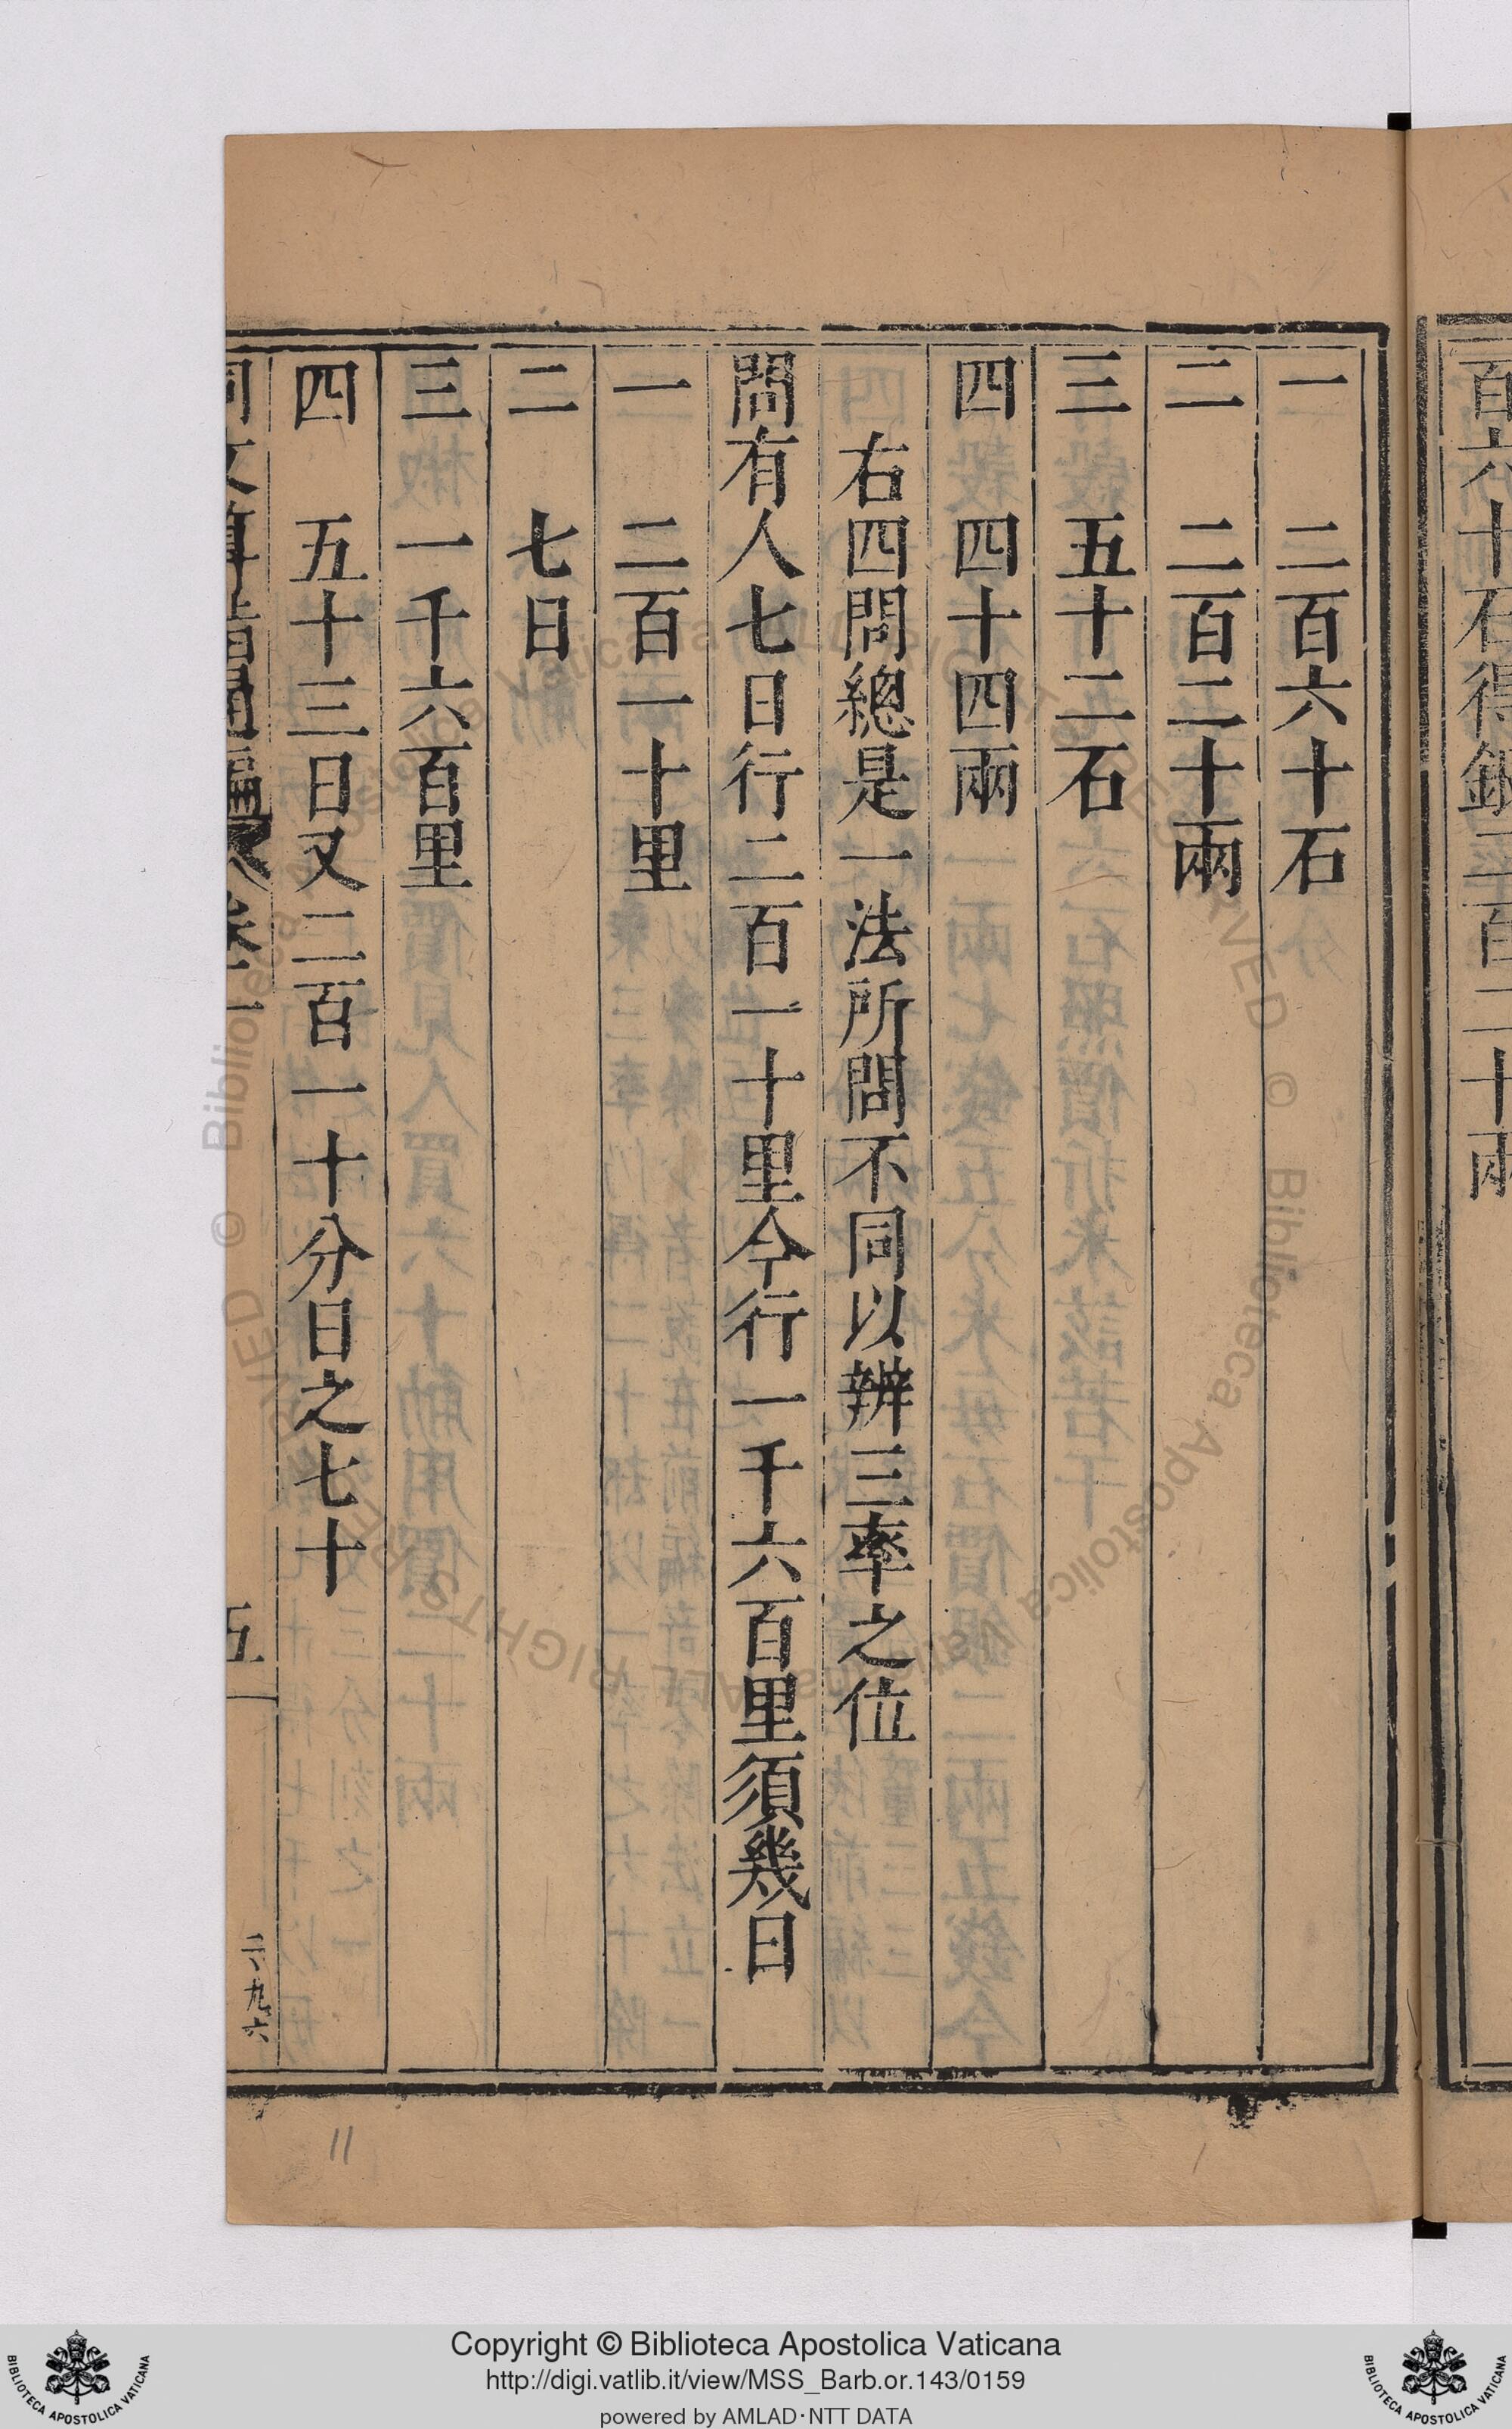 百六十石得銀二百二十兩
一 二百六十石
二 二百二十兩
三 五十二石
四 四十四兩
右四問總是一法所問不同以辨三率之位
問有人七日行二百一十里今行一千六百里須幾日
一 二百一十里
二 七日
三 一千六百里
四 五十三日又二百一十分日之七十
同文算指通編 卷一 五
11
Copyright © Biblioteca Apostolica Vaticana
http://digi.vatlib.it/view/MSS_Barb.or.143/0159
powered by AMLAD·NTT DATA
BIBLIOTECA APOSTOLICA VATICANA
BIBLIOTECA APOSTOLICA VATICANA